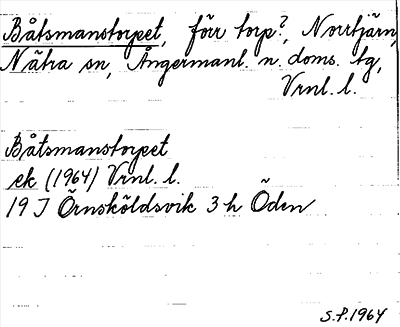 Båtsmanstorpet, förr torp?, Norrtjärn,
Nätra sn, Ångermanl. n. doms. tg,
Vrnl. l.
Båtsmanstorpet
ek (1964) Vrnl. l.
19 J Örnsköldsvik 3 h Öden
S.P. 1964